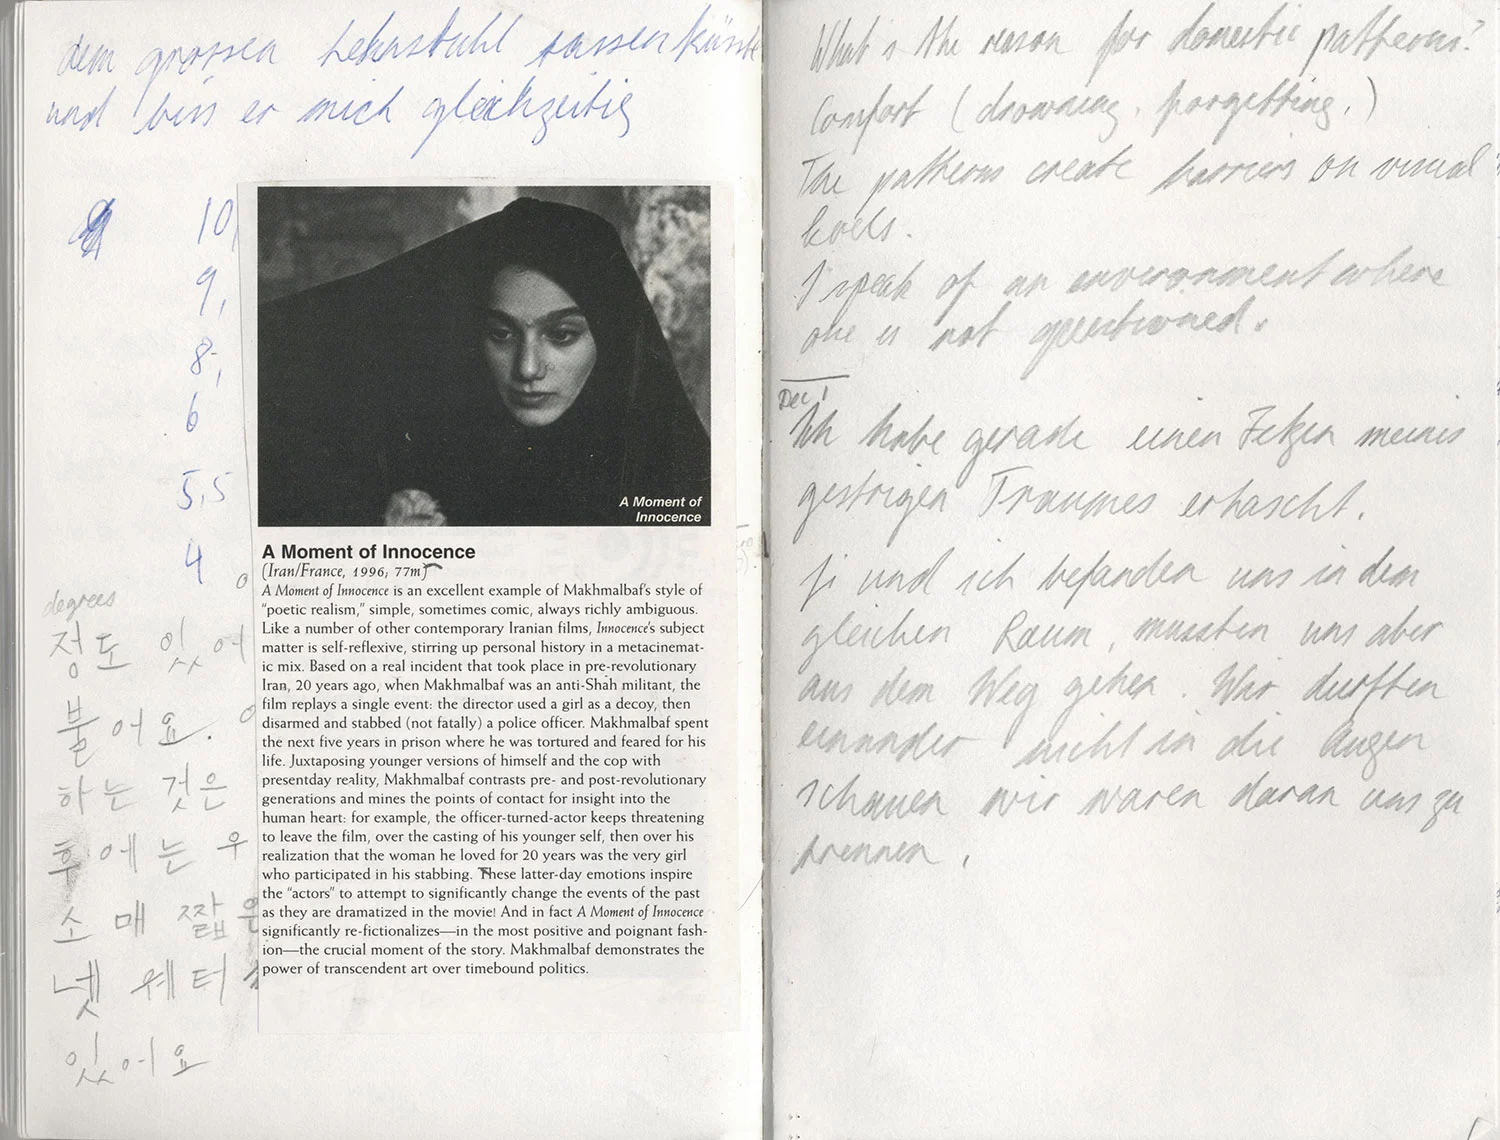 dem grossen Lehnstuhl sassen küsste
und biss er mich gleichzeitig
10,
9,
8,
6
5,5
4
degrees
정도 있어
불어요.
하는 것은
후에는 우
소매 짧은
넷 웨터
있어요
A Moment of
Innocence
A Moment of Innocence
(Iran/France, 1996; 77m)
A Moment of Innocence is an excellent example of Makhmalbaf's style of
"poetic realism," simple, sometimes comic, always richly ambiguous.
Like a number of other contemporary Iranian films, Innocence's subject
matter is self-reflexive, stirring up personal history in a metacinemat-
ic mix. Based on a real incident that took place in pre-revolutionary
Iran, 20 years ago, when Makhmalbaf was an anti-Shah militant, the
film replays a single event: the director used a girl as a decoy, then
disarmed and stabbed (not fatally) a police officer. Makhmalbaf spent
the next five years in prison where he was tortured and feared for his
life. Juxtaposing younger versions of himself and the cop with
presentday reality, Makhmalbaf contrasts pre- and post-revolutionary
generations and mines the points of contact for insight into the
human heart: for example, the officer-turned-actor keeps threatening
to leave the film, over the casting of his younger self, then over his
realization that the woman he loved for 20 years was the very girl
who participated in his stabbing. These latter-day emotions inspire
the "actors" to attempt to significantly change the events of the past
as they are dramatized in the movie! And in fact A Moment of Innocence
significantly re-fictionalizes—in the most positive and poignant fash-
ion—the crucial moment of the story. Makhmalbaf demonstrates the
power of transcendent art over timebound politics.
What is the reason for domestic patterns?
Comfort (drowning, forgetting,)
The patterns create barriers on visual
levels.
I speak of an environment where
one is not questioned.
Dec 1
Ich habe gerade einen Fetzen meines
gestrigen Traumes erhascht.
Ji und ich befanden uns in dem
gleichen Raum, mussten uns aber
aus dem Weg gehen. Wir durften
einander nicht in die Augen
schauen wir waren daran uns zu
trennen.